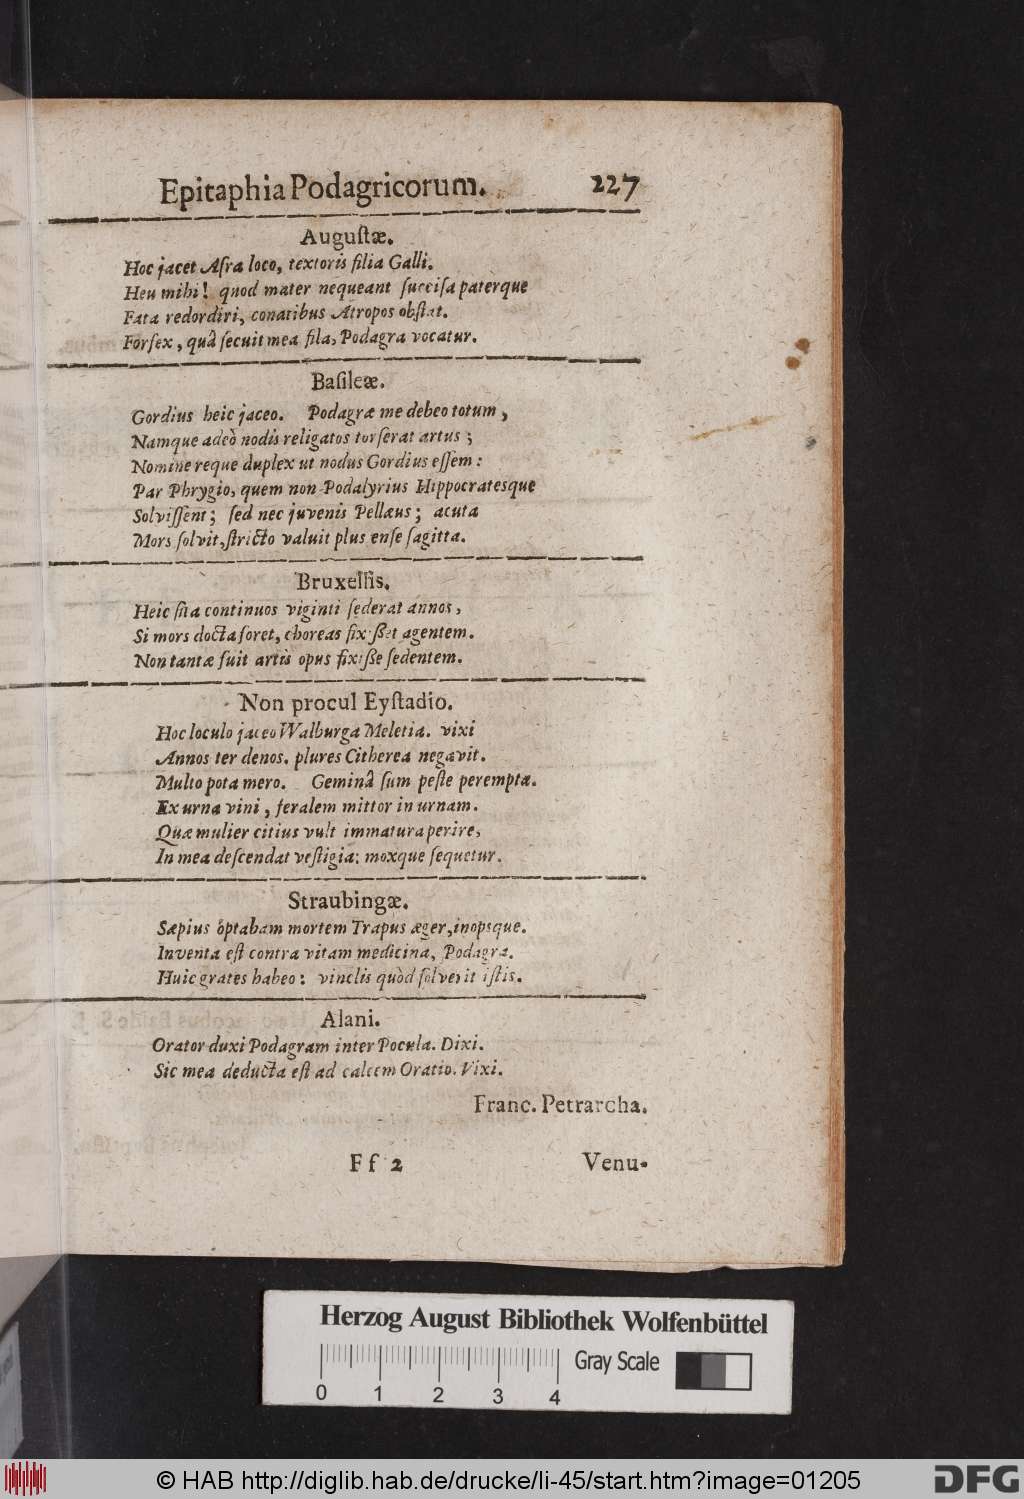 Epitaphia Podagricorum. 227
Auguſtæ.
Hoc jacet Aſra loco, textoris filia Galli.
Heu mihi! quod mater nequeant ſucciſa paterque
Fata redordiri, conatibus Atropos obſtat.
Forſex, quâ ſecuit mea fila, Podagra vocatur.
Baſileæ.
Gordius heic jaceo. Podagræ me debeo totum,
Namque adeò nodis religatos torſerat artus;
Nomine reque duplex ut nodus Gordius eſſem:
Par Phrygio, quem non Podalyrius Hippocratesque
Solviſſent; ſed nec juvenis Pellæus; acuta
Mors ſolvit, ſtricto valuit plus enſe ſagitta.
Bruxellis.
Heic ſita continuos viginti ſederat annos,
Si mors docta foret, choreas fixiſſet agentem.
Non tantæ fuit artis opus fixiſſe ſedentem.
Non procul Eyſtadio.
Hoc loculo jaceo Walburga Meletia. vixi
Annos ter denos. plures Citherea negavit.
Multo pota mero. Geminâ ſum peſte perempta.
Ex urna vini, feralem mittor in urnam.
Quæ mulier citius vult immatura perire,
In mea deſcendat veſtigia: moxque ſequetur.
Straubingæ.
Sæpius optabam mortem Trapus æger, inopsque.
Inventa eſt contra vitam medicina, Podagra.
Huic grates habeo: vinclis quòd ſolverit iſtis.
Alani.
Orator duxi Podagram inter Pocula. Dixi.
Sic mea deducta eſt ad calcem Oratio. Vixi.
Franc. Petrarcha.
Ff 2 Venu-
Herzog August Bibliothek Wolfenbüttel
Gray Scale
0 1 2 3 4
© HAB http://diglib.hab.de/drucke/li-45/start.htm?image=01205
DFG